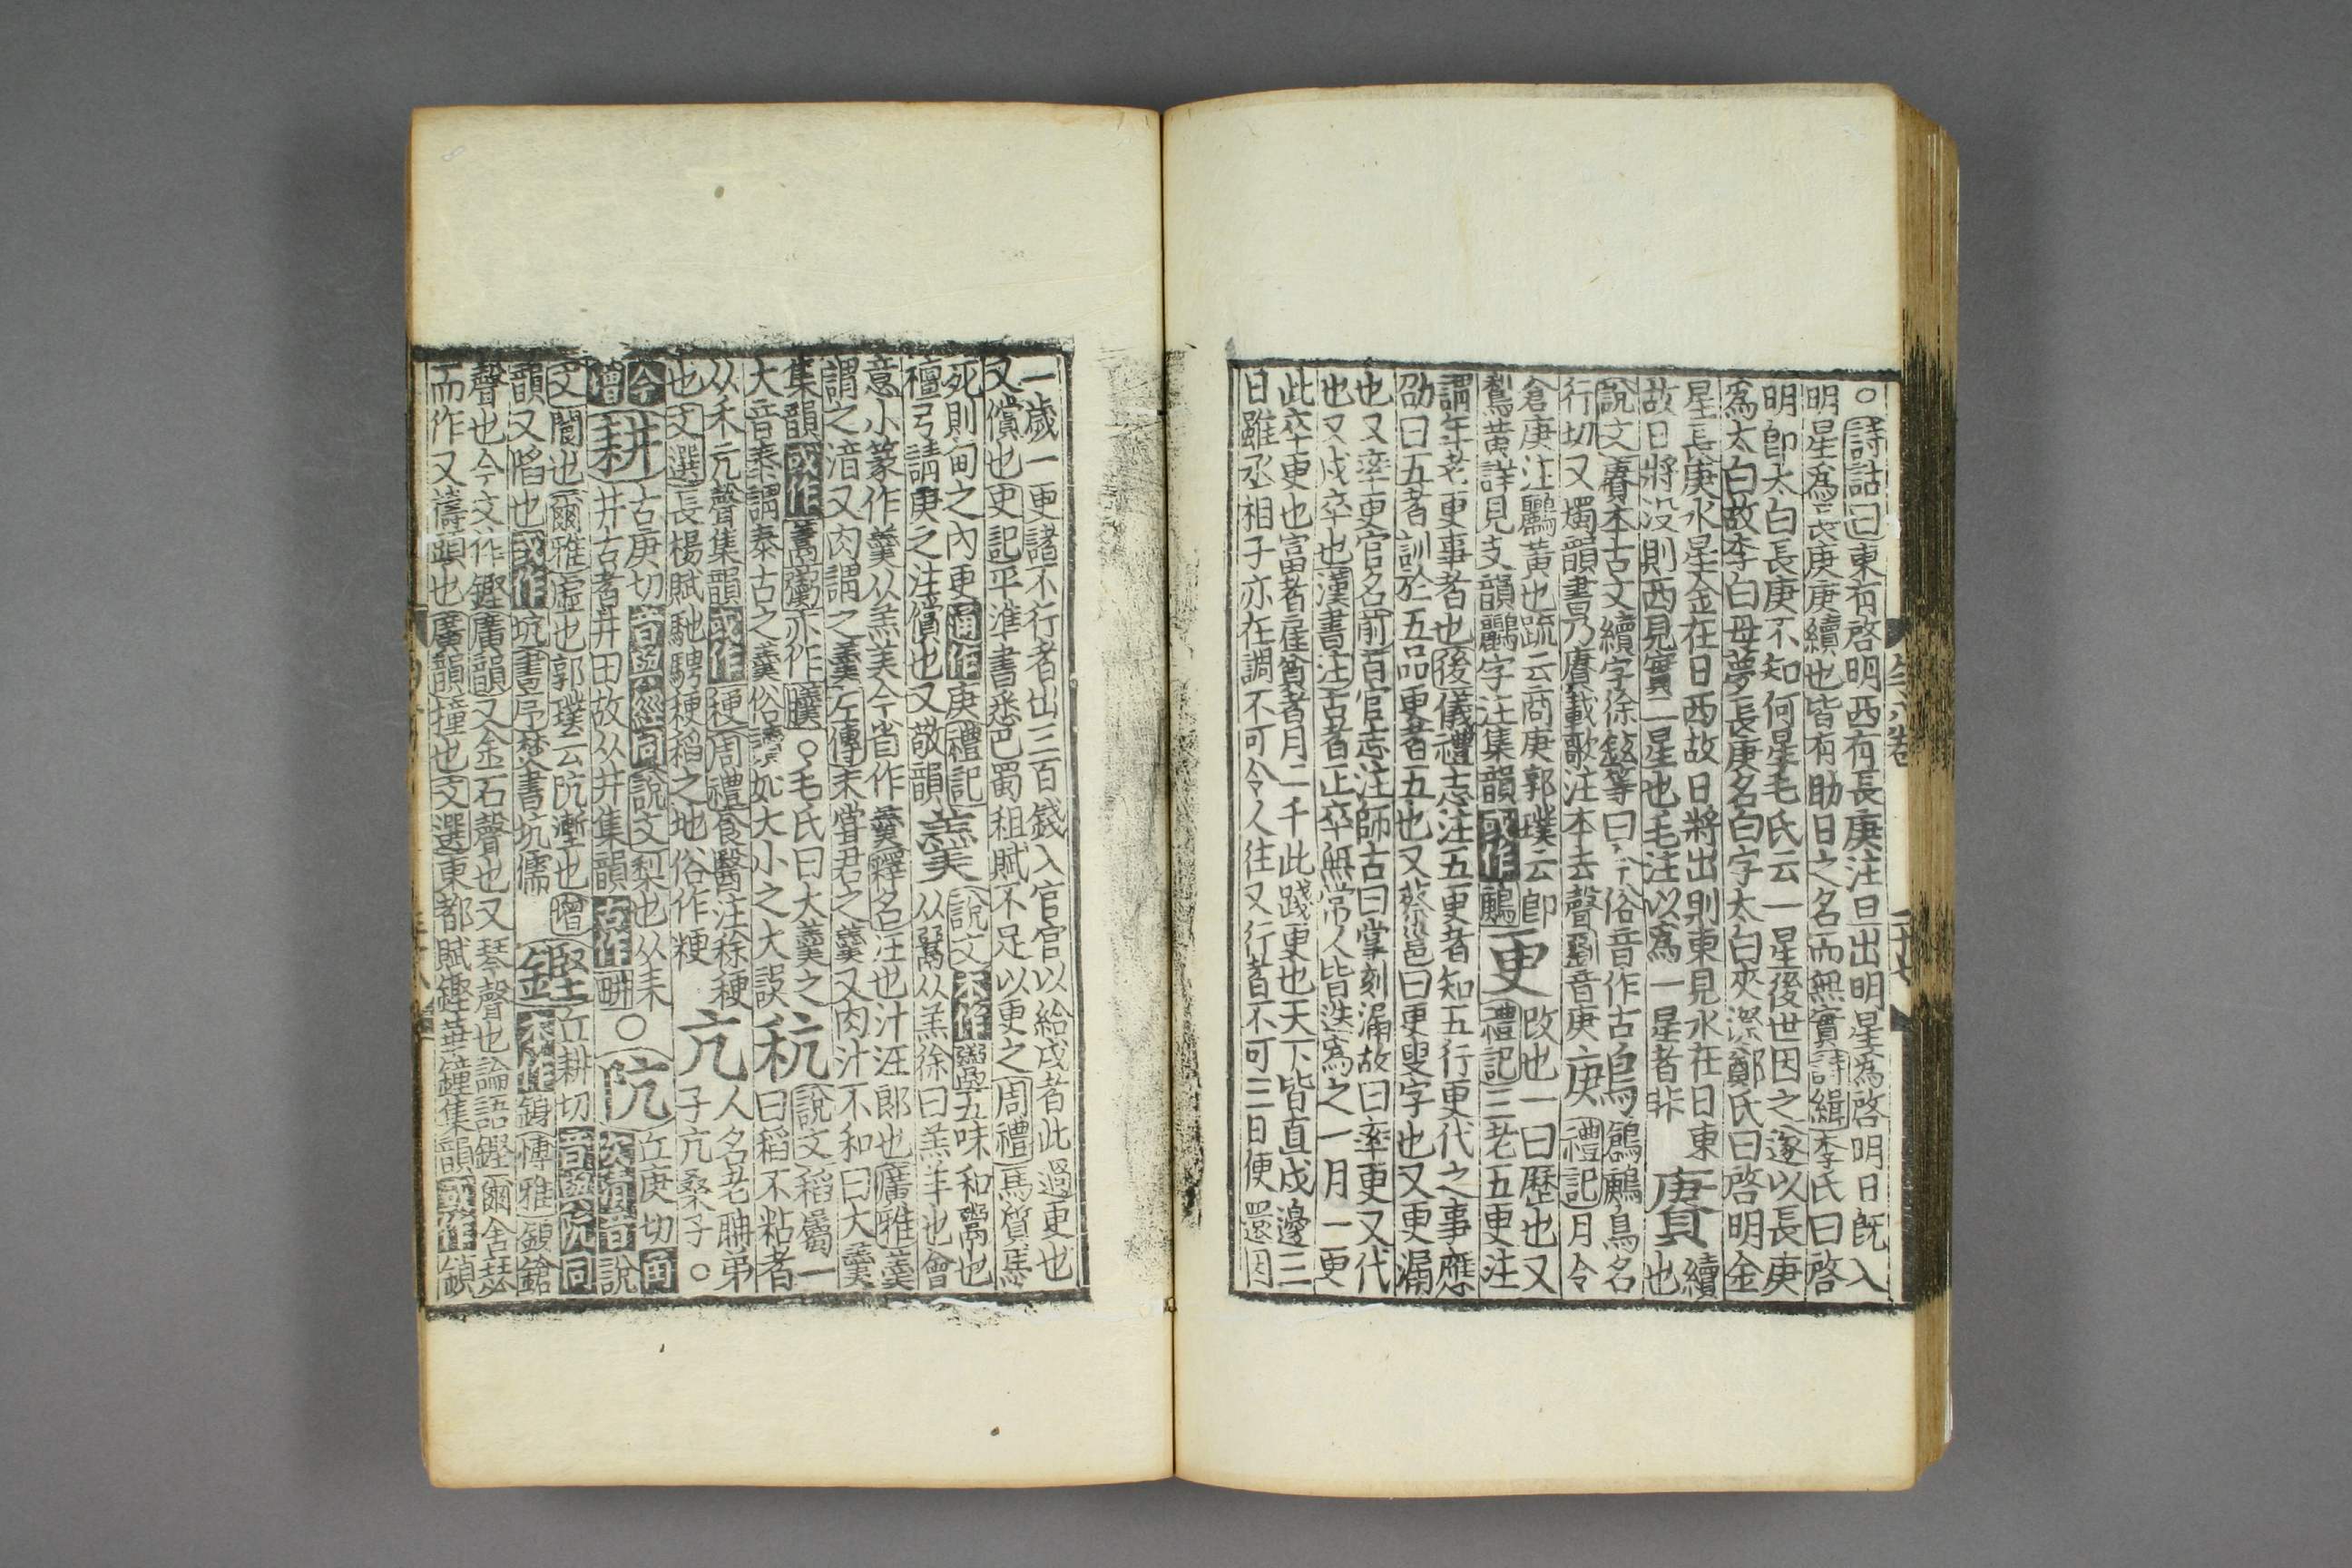 ○詩詁曰東有啓明西有長庚注日出明星爲啓明日旣入
明星爲長庚庚續也皆有助日之名而無實詩緝李氏曰啓
明卽太白長庚不知何星毛氏云一星後世因之遂以長庚
爲太白故李白母夢長庚名白字太白夾漈鄭氏曰啓明金
星長庚水星金在日西故日將出則東見水在日東
故日將没則西見實二星也毛注以爲一星者非
賡續
也
說文賡本古文續字徐鉉等曰今俗音作古
行切又燭韻書乃賡載歌注本去聲劉音庚
鶬鶊鳥名
禮記月令
倉庚注鸝黃也疏云商庚郭璞云卽
鵹黃詳見支韻鸝字注集韻或作鶊
更
改也一曰歷也又
禮記三老五更注
謂年老更事者也後儀禮志注五更者知五行更代之事應
劭曰五者訓於五品更者五也又蔡邕曰更叟字也又更漏
也又率更官名前百官志注師古曰掌刻漏故曰率更又代
也又戍卒也漢書注古者正卒無常人皆迭爲之一月一更
此卒更也富者雇貧者月二千此踐更也天下皆直戍邊三
日雖丞相子亦在調不可令人往又行者不可三日便還因
一歲一更諸不行者出三百錢入官官以給戍者此過更也
又償也史記平準書悉巴蜀租賦不足以更之周禮馬質馬
死則旬之內更通作庚禮記
檀弓請庚之注償也又敬韻
羹
說文本作𩱧五味和鬻也
从䰜从羔徐曰羔羊也會
意小篆作羹从羔美今省作羹釋名汪也汁汪郎也廣雅羹
謂之湆又肉謂之羹左傳未嘗君之羹又肉汁不和曰大羹
集韻或作亦作臛○毛氏曰大羹之
大音泰謂泰古之羹俗讀如大小之大誤
秔
說文稻屬一
曰稻不粘者
从禾亢聲集韻或作稉周禮食醫注稌稉
也文選長楊賦馳騁稉稻之地俗作粳
亢
人名老聃弟
子亢桑子○
今增
耕
古庚切音與經同說文犂也从耒
井古者井田故从井集韻古作畊
○阬
丘庚切角
次濁音說
文閬也爾雅虛也郭璞云阬壍也增
韻又陷也或作坑書序焚書坑儒
鏗
丘耕切音與阬同
本作鍞博雅鍞鎗
聲也今文作鏗廣韻又金石聲也又琴聲也論語鏗爾舍瑟
而作又擣頭也廣韻撞也文選東都賦鏗華鐘集韻或作鍞